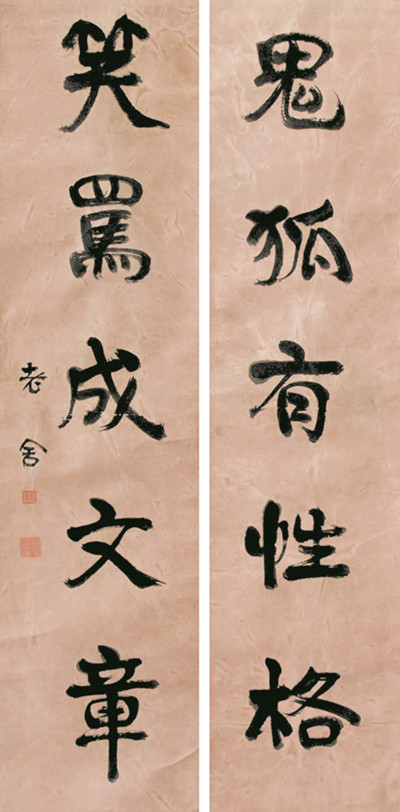 鬼狐有性格
笑罵成文章
老舍